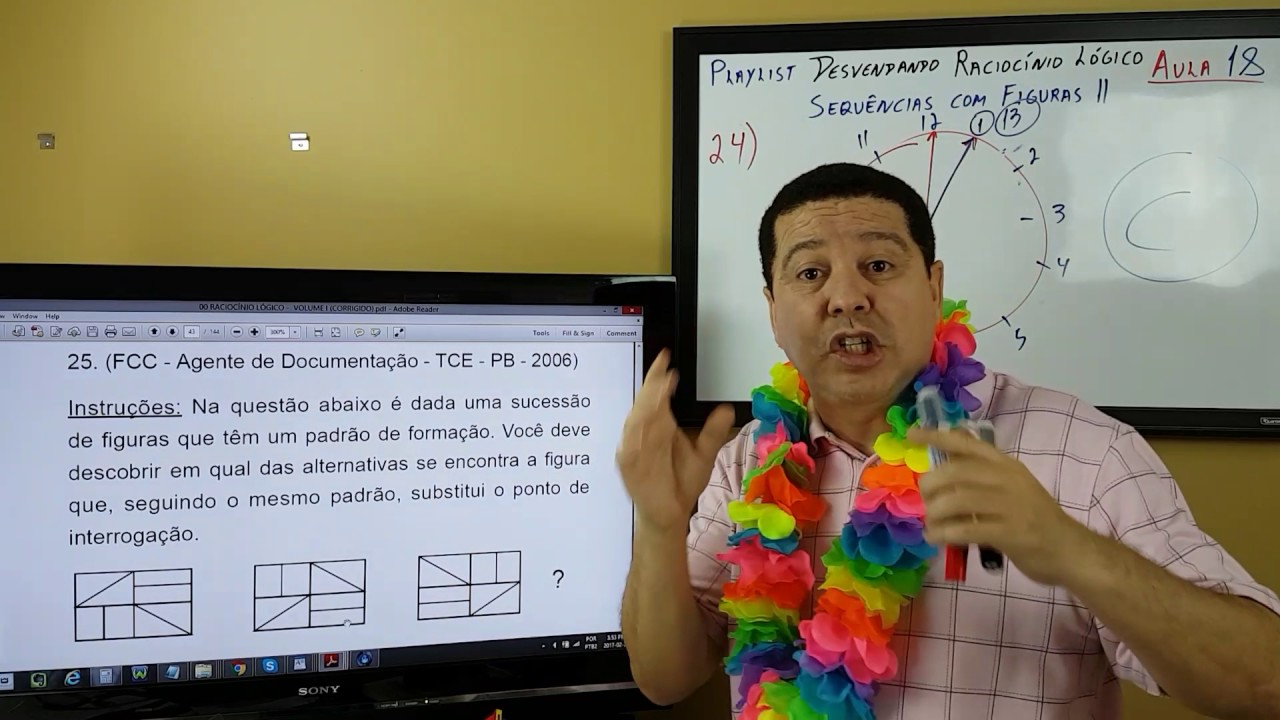 PLAYLIST DESVENDANDO RACIOCÍNIO LÓGICO AULA 18
SEQUÊNCIAS COM FIGURAS II
24)
11 12 1 13
2
3
4
5
C
00 RACIOCÍNIO LÓGICO - VOLUME I (CORRIGIDO).pdf - Adobe Reader
Window Help
43 / 144 300% Tools Fill & Sign Comment
25. (FCC - Agente de Documentação - TCE - PB - 2006)
Instruções: Na questão abaixo é dada uma sucessão
de figuras que têm um padrão de formação. Você deve
descobrir em qual das alternativas se encontra a figura
que, seguindo o mesmo padrão, substitui o ponto de
interrogação.
?
POR
PTB2
SONY